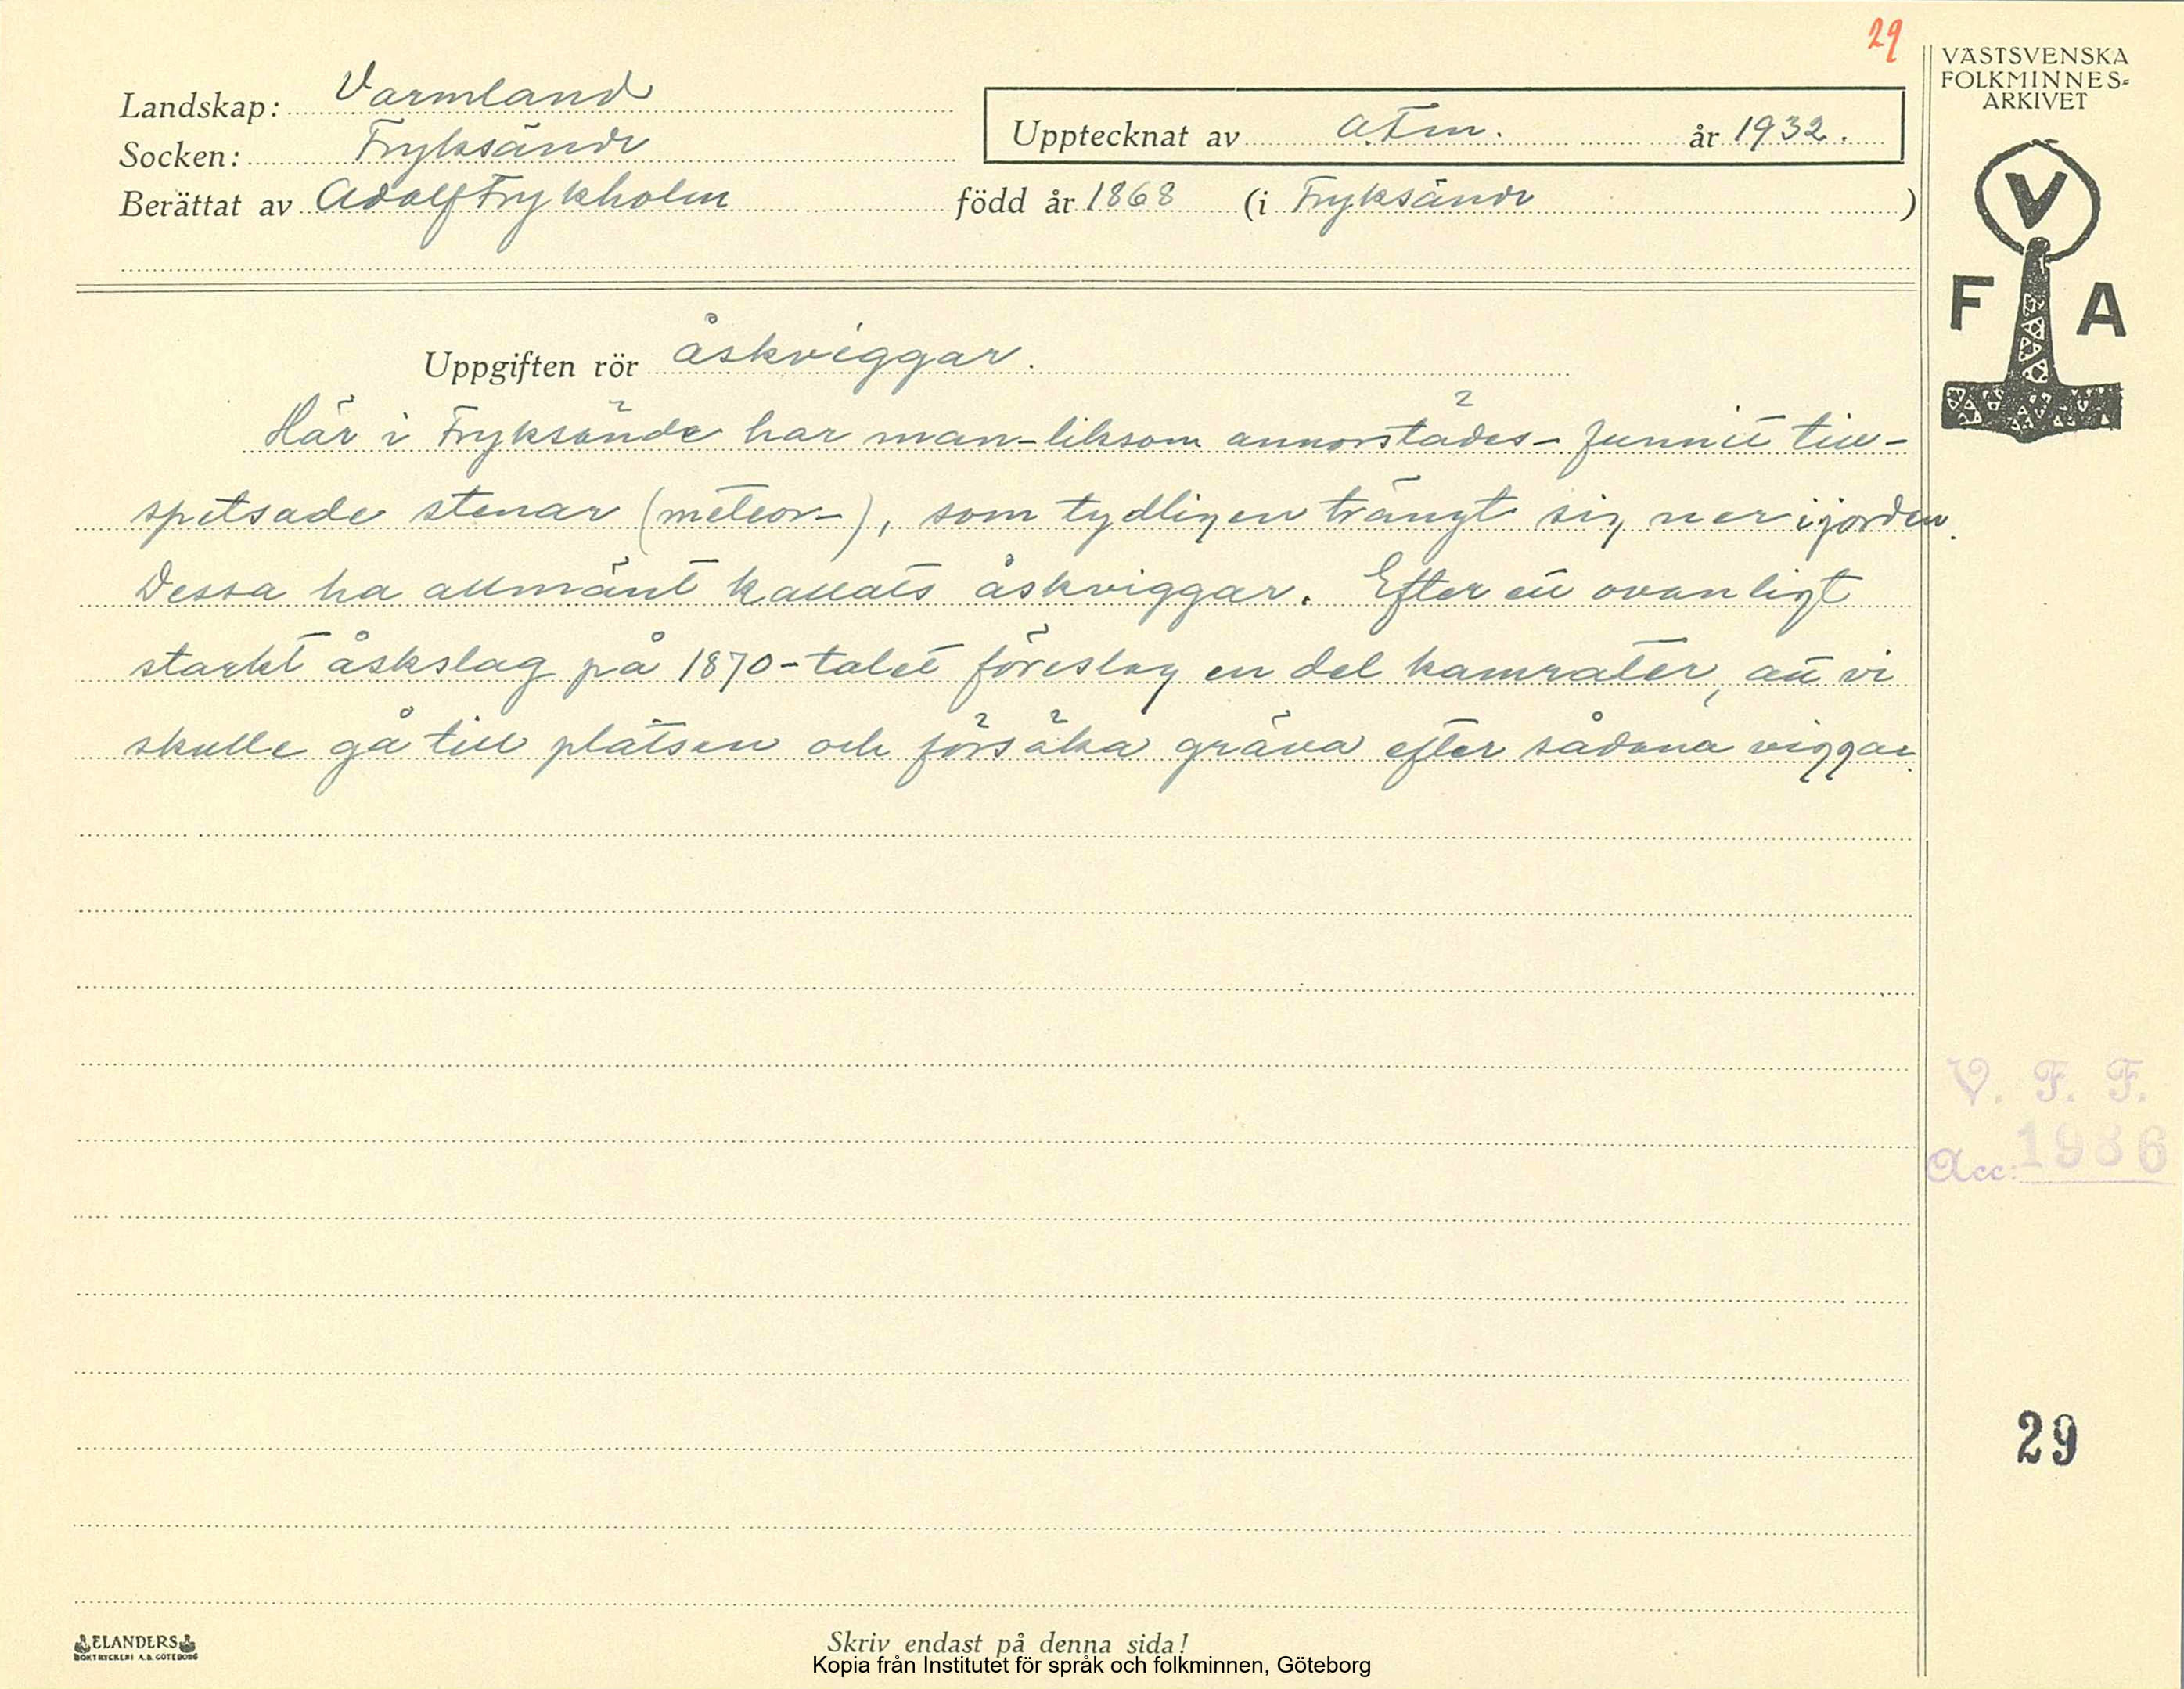 29
VÄSTSVENSKA
FOLKMINNES-
ARKIVET
Landskap: Värmland
Upptecknat av a.Fm. år 1932.
Socken: Fryksände
Berättat av Adolf Frykholm född år 1868 (i Fryksände )
V
F A
Uppgiften rör åskviggar.
Här i Fryksände har man - liksom annorstädes - funnit till-
spetsade stenar (meteor-), som tydligen trängt sig ner i jorden.
Dessa ha allmänt kallats åskviggar. Efter ett ovanligt
starkt åskslag på 1870-talet föreslog en del kamrater, att vi
skulle gå till platsen och försöka gräva efter sådana viggar.
V. F. F.
Acc: 1936
29
ELANDERS
BOKTRYCKERI A.B. GÖTEBORG
Skriv endast på denna sida!
Kopia från Institutet för språk och folkminnen, Göteborg